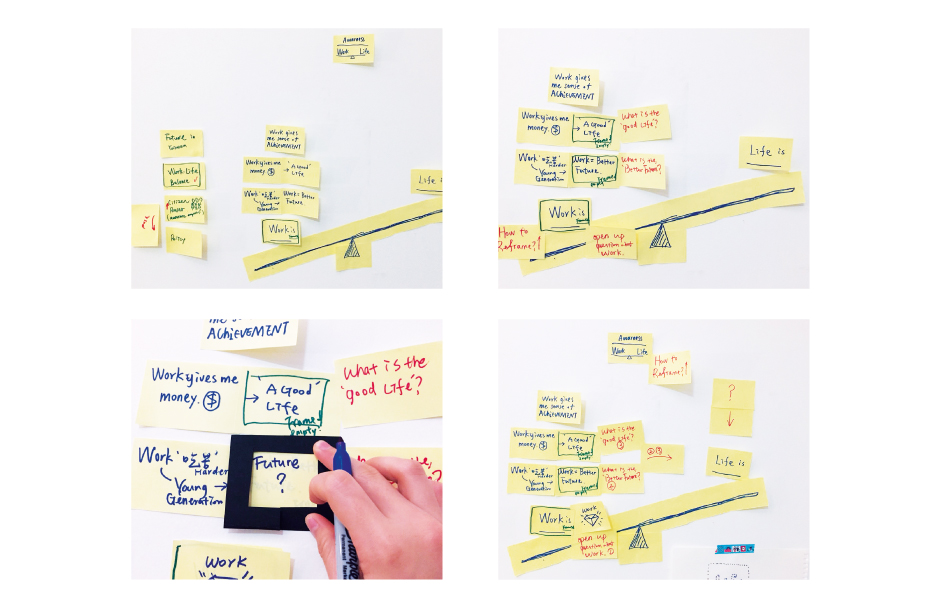 Awareness
Work Life
Future in
Taiwan
Work-Life
Balance
Citizen
Power
Policy
Work gives
me sense of
ACHIEVEMENT
Work gives me
money. $ → 'A Good'
Life
Work '吃苦' Work = Better
Harder Future
Young
Generation
Work is
Life
Work gives
me sense of
ACHIEVEMENT
Work gives me
money $
→ 'A Good'
Life
Frame
empty
What is the
'good life'?
Work '吃苦'
Harder
Young
Generation
Work = Better
Future
What is the
'Better Future'?
Life is
Work is
How to
Reframe?!
open up
question about
work.
me sense of
ACHIEVEMENT
Work gives me
money. $
→ 'A Good'
Life
Frame
empty
What is the
'good life'?
Work '吃苦'
Harder
Young →
Generation
Future
?
Work
Awareness
Work Life
How to
Reframe?!
?
↓
Work gives
me sense of
ACHIEVEMENT
Work gives me
money $
→ 'A Good'
Life
What is the
'good life'?
Work '吃苦'
Harder
Young
Generation
Work = Better
Future
What is the
'Better Future'?
Life is
Work is
Work
open up
question about
work.